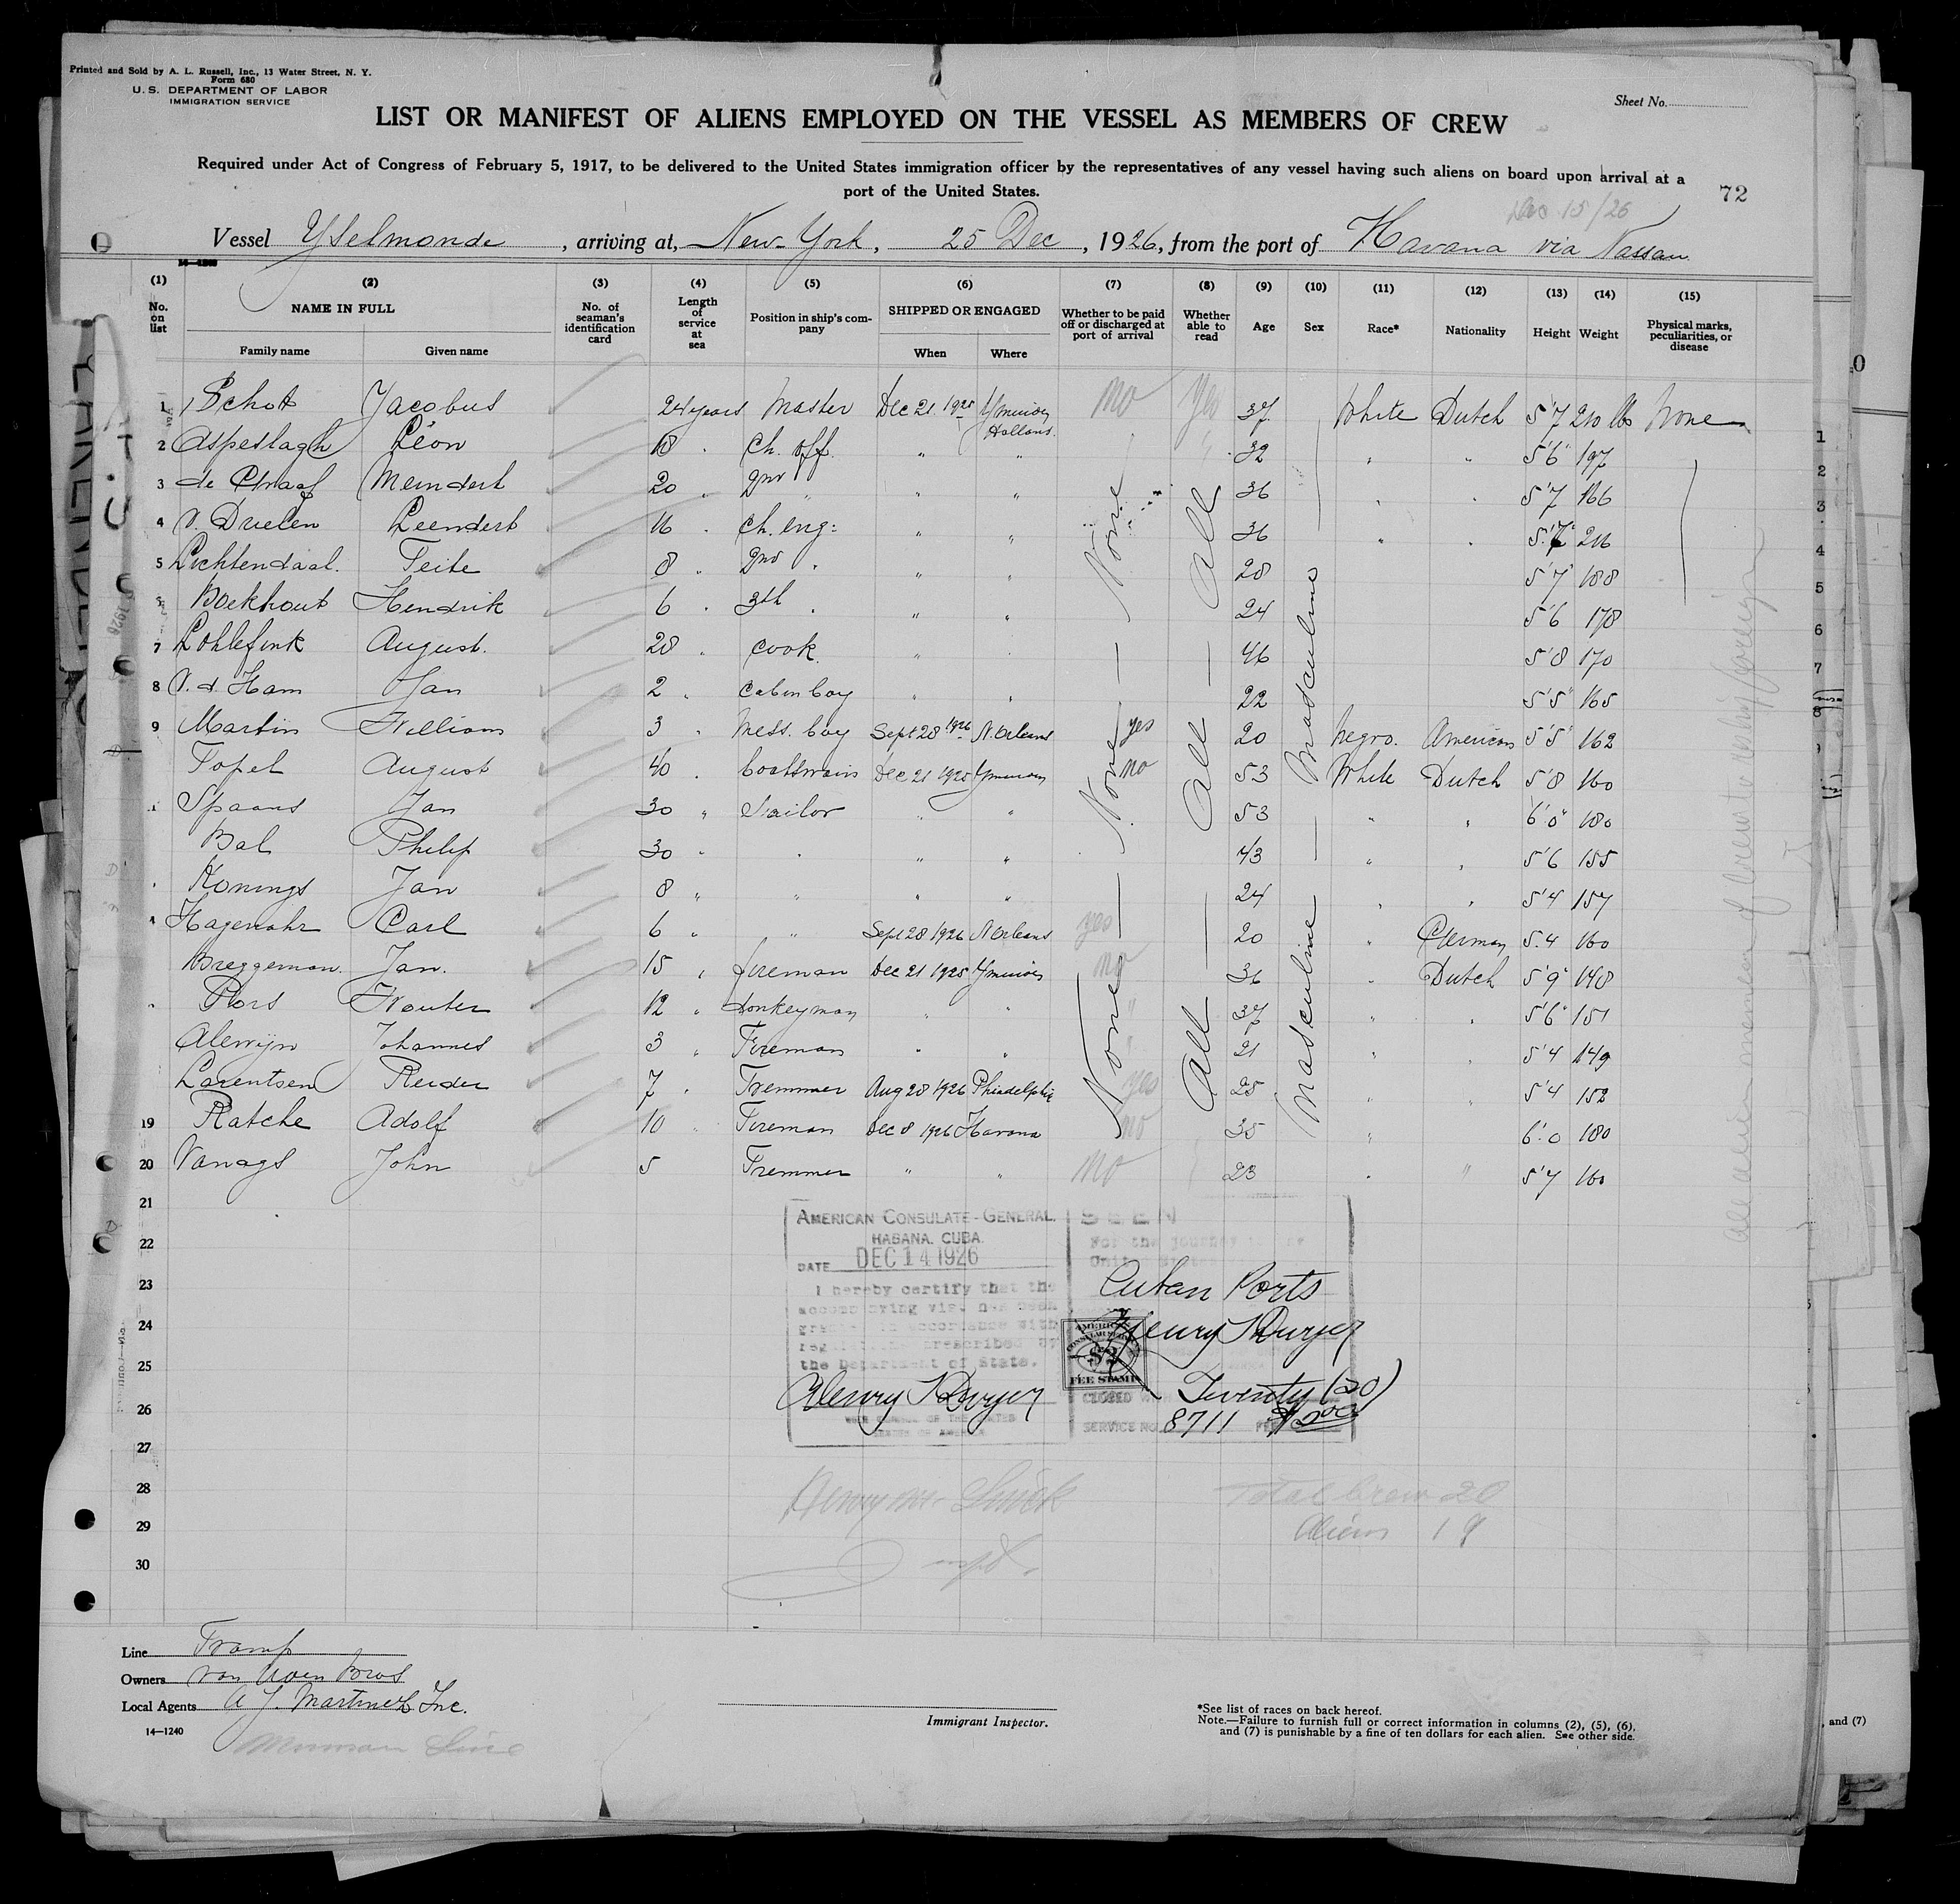 Printed and Sold by A. L. Russell, Inc., 13 Water Street, N. Y.
Form 680
U. S. DEPARTMENT OF LABOR
IMMIGRATION SERVICE
Sheet No.
LIST OR MANIFEST OF ALIENS EMPLOYED ON THE VESSEL AS MEMBERS OF CREW
Required under Act of Congress of February 5, 1917, to be delivered to the United States immigration officer by the representatives of any vessel having such aliens on board upon arrival at a
port of the United States.
72
Dec 15/26
Vessel Yselmonde, arriving at, New-York, 25 Dec, 1926, from the port of Havana via Nassau
(1) (2) (3) (4) (5) (6) (7) (8) (9) (10) (11) (12) (13) (14) (15)
No. on list NAME IN FULL Family name Given name No. of seaman's identification card Length of service at sea Position in ship's company SHIPPED OR ENGAGED When Where Whether to be paid off or discharged at port of arrival Whether able to read Age Sex Race* Nationality Height Weight Physical marks, peculiarities, or disease
1 Schot Jacobus 24 years Master Dec 21 1925 Ymuiden Holland no Yes 37 White Dutch 5'7 210 lbs None
2 Aspeslagh Léon 18 " Ch. off. " " 32 " " 5'6" 197
3 de Graaf Meindert 20 " 2nd " " " 36 " " 5'7 166
4 v. Druten Leendert 16 " Ch. eng: " " 36 " " 216
5 Lichtendaal. Teite 8 " 2nd " " " 28 5'7" 188
Boekhout Hendrik 6 " 3th " " " 24 5'6 178
7 Lohlefink August. 28 " Cook " 46 5'8 170
8 V. d. Ham Jan 2 " Cabin boy " " 22 5'5" 165
9 Martin William 3 " Mess. boy Sept 28 1926 N. Orleans yes 20 Negro. American 5'5" 162
Topel August 40 " boatswain Dec 21 1925 Ymuiden no 53 White Dutch 5'8 160
Spaans Jan 30 " Sailor " " 53 " " 6'0" 180
Bal Philip 30 " " " " 43 " " 5'6 155
Konings Jan 8 " " " " 24 " " 5'4 157
Hagenahr Carl 6 " " Sept 28 1926 N Orleans yes 20 " German 5.4 160
Breggeman. Jan. 15 " fireman Dec 21 1925 Ymuiden no 36 " Dutch 5'9" 148
Pors Wouter 12 " donkeyman " " " 37 " " 5'6" 151
Alewijn Johannes 3 " Fireman " " " 21 " " 5'4 149
Larentsen Reider 7 " Tremmer Aug 28 1926 Phiadelphia yes 25 " " 5'4 152
19 Ratche Adolf 10 " Fireman Dec 8 1926 Havana no 35 " 6'.0 180
20 Vanags John 5 Tremmer " " no 23 " " 5'7 160
None All Masculine
None All
None All Masculine
21
22
23
24
25
26
27
28
29
30
AMERICAN CONSULATE-GENERAL.
HABANA. CUBA.
DATE DEC 14 1926
I hereby certify that the
accompanying visa has been
granted in accordance with
regulations prescribed by
the Department of State.
Henry T Dwyer
SEEN
For the journey to the
United States
Cuban Ports
Henry T Dwyer
AMERICAN
CONSULAR SERVICE
$2
FEE STAMP
Twenty (20)
SERVICE NO. 8711 FEE $2.00
Total Crew 20
Aliens 19
Line Tramp
Owners van Uden Bros
Local Agents A. J. Martinez Inc.
14—1240
Munson Line
Immigrant Inspector.
*See list of races on back hereof.
Note.—Failure to furnish full or correct information in columns (2), (5), (6),
and (7) is punishable by a fine of ten dollars for each alien. See other side.
, and (7)